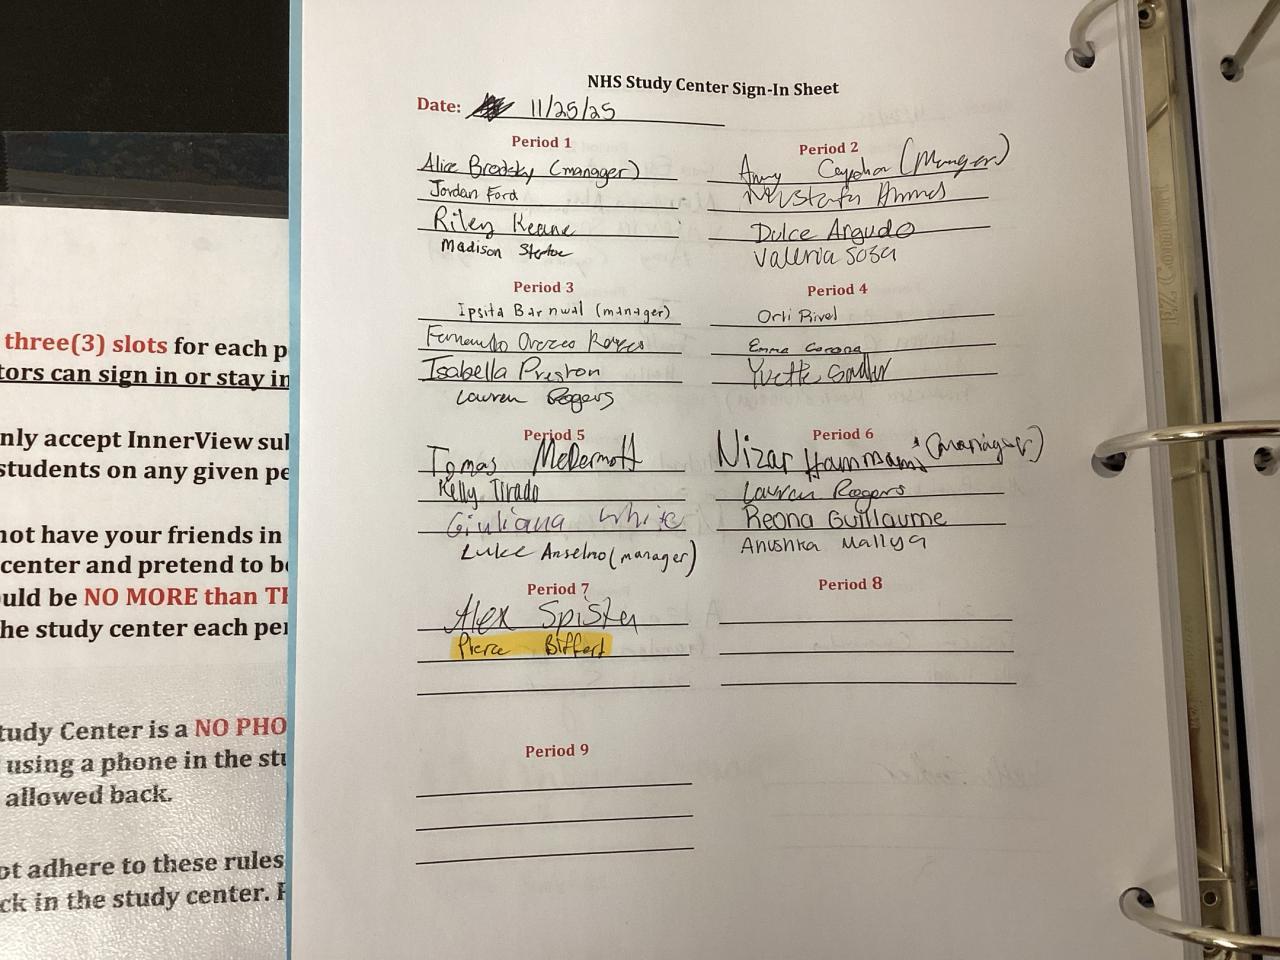 NHS Study Center Sign-In Sheet
Date: 11/25/25
Period 1
Alice Brodsky (manager)
Jordan Ford
Riley Keane
Madison
Period 2
Amy (Manger)
Mustafa Ahmed
Dulce Argudo
Valeria Sosa
Period 3
Ipsita Barnwal (manager)
Fernando Orozco
Isabella Preston
Lauren Rogers
Period 4
Orli Rivel
Emma Corona
Yvette
Period 5
Tomas McDermott
Kelly Tirado
Giuliana White
Luke Anselmo (manager)
Period 6
Nizar Hammami (manager)
Lauren Rogers
Reona Guillaume
Anushka Mallya
Period 7
Alex
Pierce Biffert
Period 8
Period 9
three(3) slots for each p
tors can sign in or stay in
nly accept InnerView sul
students on any given pe
not have your friends in
center and pretend to be
uld be NO MORE than TH
he study center each per
tudy Center is a NO PHO
using a phone in the stu
allowed back.
ot adhere to these rules
ck in the study center. F